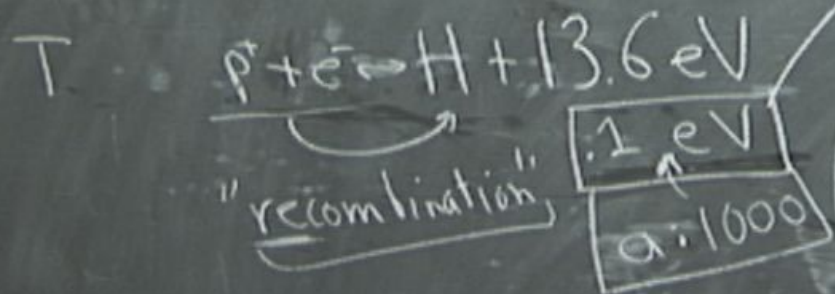 T p⁺+e⁻↔H+13.6 eV
.1 eV
"recombination"
a:1000